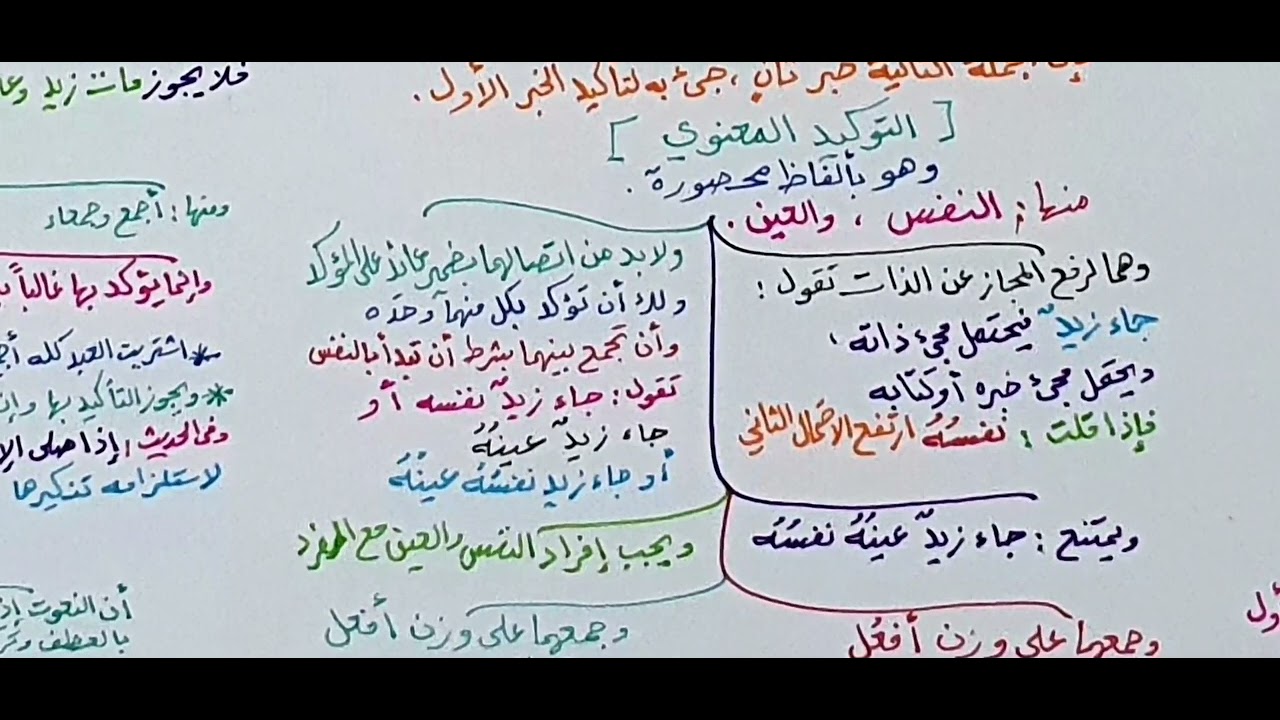 الجملة الثانية خبر ثانٍ، جيء به لتأكيد الخبر الأول.
[ التوكيد المعنوي ]
وهو بألفاظ محصورة.
منها: النفس، والعين.
وهما لرفع المجاز عن الذات تقول:
جاء زيدٌ فيحتمل مجيء ذاته،
ويحتمل مجيء خبره أو كتابه
فإذا قلت: نفسُهُ ارتفع الاحتمال الثاني
ويمتنع: جاء زيدٌ عينُهُ نفسُهُ
وجمعهما على وزن أفعُل
ولا بد من اتصالهما بضمير عائد على المؤكد
ولك أن تؤكد بكل منهما وحده
وأن تجمع بينهما بشرط أن تبدأ بالنفس
تقول: جاء زيدٌ نفسه أو
جاء زيدٌ عينُهُ
أو جاء زيد نفسُهُ عينُهُ
ويجب إفراد النفس والعين مع المفرد
وجمعهما على وزن أفعل
فلا يجوز مات زيد
ومنها: أجمع وجمعاء
وإنما يؤكد بها غالباً
اشتريت العبد كله
* ويجوز التأكيد بها
وفي الحديث: إذا صلى
لاستلزامه تنكيرها
أن النعوت
بالعطف